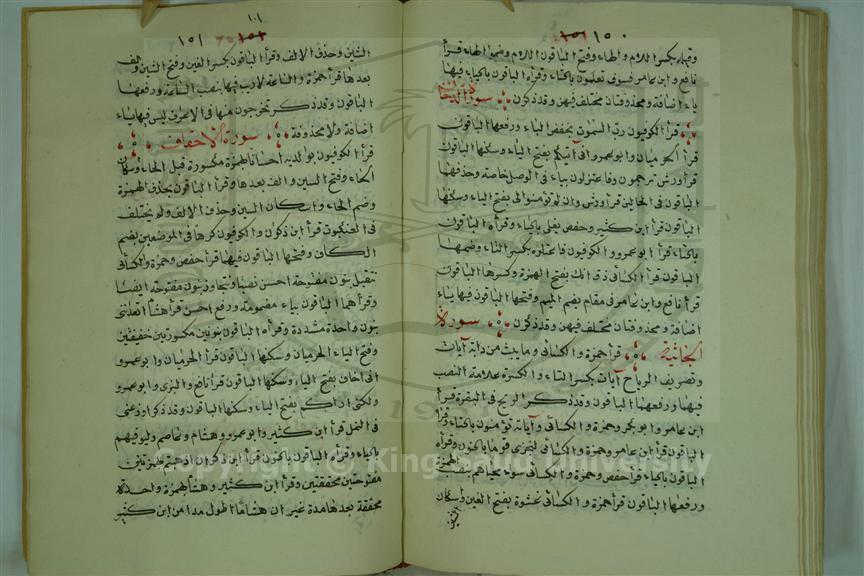 ١٥٠
وقيله بكسر اللام والهاء وفتح الباقون اللام وضموا الهاء قرأ
نافع وابن عامر فسوف تعلمون بالتاء وقرأه الباقون بالياء فيها
ياء اضافة ومحذوفتان مختلف فيهن وقد ذكرن سورة الدخان
قرأ الكوفيون رب السموت بخفض الباء ورفعها الباقون
قرأ الحرميان وابو عمرو انى آتيكم بفتح الياء وسكنها الباقون
قرأ ورش ترجمون وفاعتزلون بياء فى الوصل خاصة وحذفهما
الباقون فى الحالين قرأ ورش وان لم تؤمنوا لى بفتح الياء وسكنها
الباقون قرأ ابن كثير وحفص يغلى بالياء وقرأه الباقون
بالتاء قرأ ابو عمرو والكوفيون فاعتلوه بكسر التاء وضمها
الباقون قرأ الكسائى ذق انك بفتح الهمزة وكسرها الباقون
قرأ نافع وابن عامر فى مقام بضم الميم وفتحها الباقون فيها ياء
اضافة ومحذوفتان مختلف فيهن وقد ذكرن سورة
الجاثية قرأ حمزة والكسائى وما يبث من دابة آيات
وتصريف الرياح آيات بكسر التاء والكسرة علامة النصب
فيهما ورفعهما الباقون وقد ذكر الريح فى البقرة قرأ
ابن عامر وابو بكر وحمزة والكسائى وآياته تؤمنون بالتاء وقرأ
الباقون قرأ ابن عامر وحمزة والكسائى لنجزى قوما بالنون وقرأه
الباقون بالياء قرأ حفص وحمزة والكسائى سواء محياهم بنصب الهمزة
ورفعها الباقون قرأ حمزة والكسائى غشوة بفتح الغين واسكان
الشين
١٥١
الشين وحذف الالف وقرأ الباقون بكسر الغين وفتح الشين والف
بعدها قرأ حمزة والساعة لا ريب فيها بنصب الساعة ورفعها
الباقون وقد ذكر تخرجون منها فى الاعراف ليس فيها ياء
اضافة ولا محذوفة سورة الاحقاف
قرأ الكوفيون بوالديه احسانا بهمزة مكسورة قبل الحاء وسكان
الحاء وفتح السين والف بعدها وقرأ الباقون بحذف الهمزة
وضم الحاء واسكان السين وحذف الالف ولم يختلف
فى العنكبوت قرأ ابن ذكوان والكوفيون كرها فى الموضعين بضم
الكاف وفتحها الباقون فيهما قرأ حفص وحمزة والكسائى
نتقبل بنون مفتوحة احسن نصبا ونتجاوز بنون مفتوحة ايضا
وقرأهما الباقون بياء مضمومة ورفع احسن قرأ هشام اتعدانى
بنون واحدة مشددة وقرأه الباقون بنونين مكسورتين خفيفتين
وفتح الياء الحرميان وسكنها الباقون قرأ الحرميان وابو عمرو
انى اخاف بفتح الياء وسكنها الباقون قرأ نافع والبزى وابو عمرو
ولكنى اراكم بفتح الياء وسكنها الباقون وقد ذكر اوزعنى
فى النمل قرأ ابن كثير وابو عمرو وهشام وعاصم وليوفيهم
بالياء وقرأه الباقون بالنون قرأ ابن ذكوان اذهبتم بهمزتين
مفتوحتين محققتين وقرأ ابن كثير وهشام بهمزة واحدة
محققة بعدها مدة غير ان هشاما اطول مدا من ابن كثير
Copyright © King Saud University